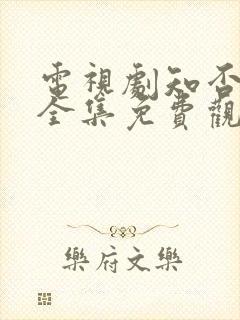 電視劇知否
全集免費觀
樂府文樂